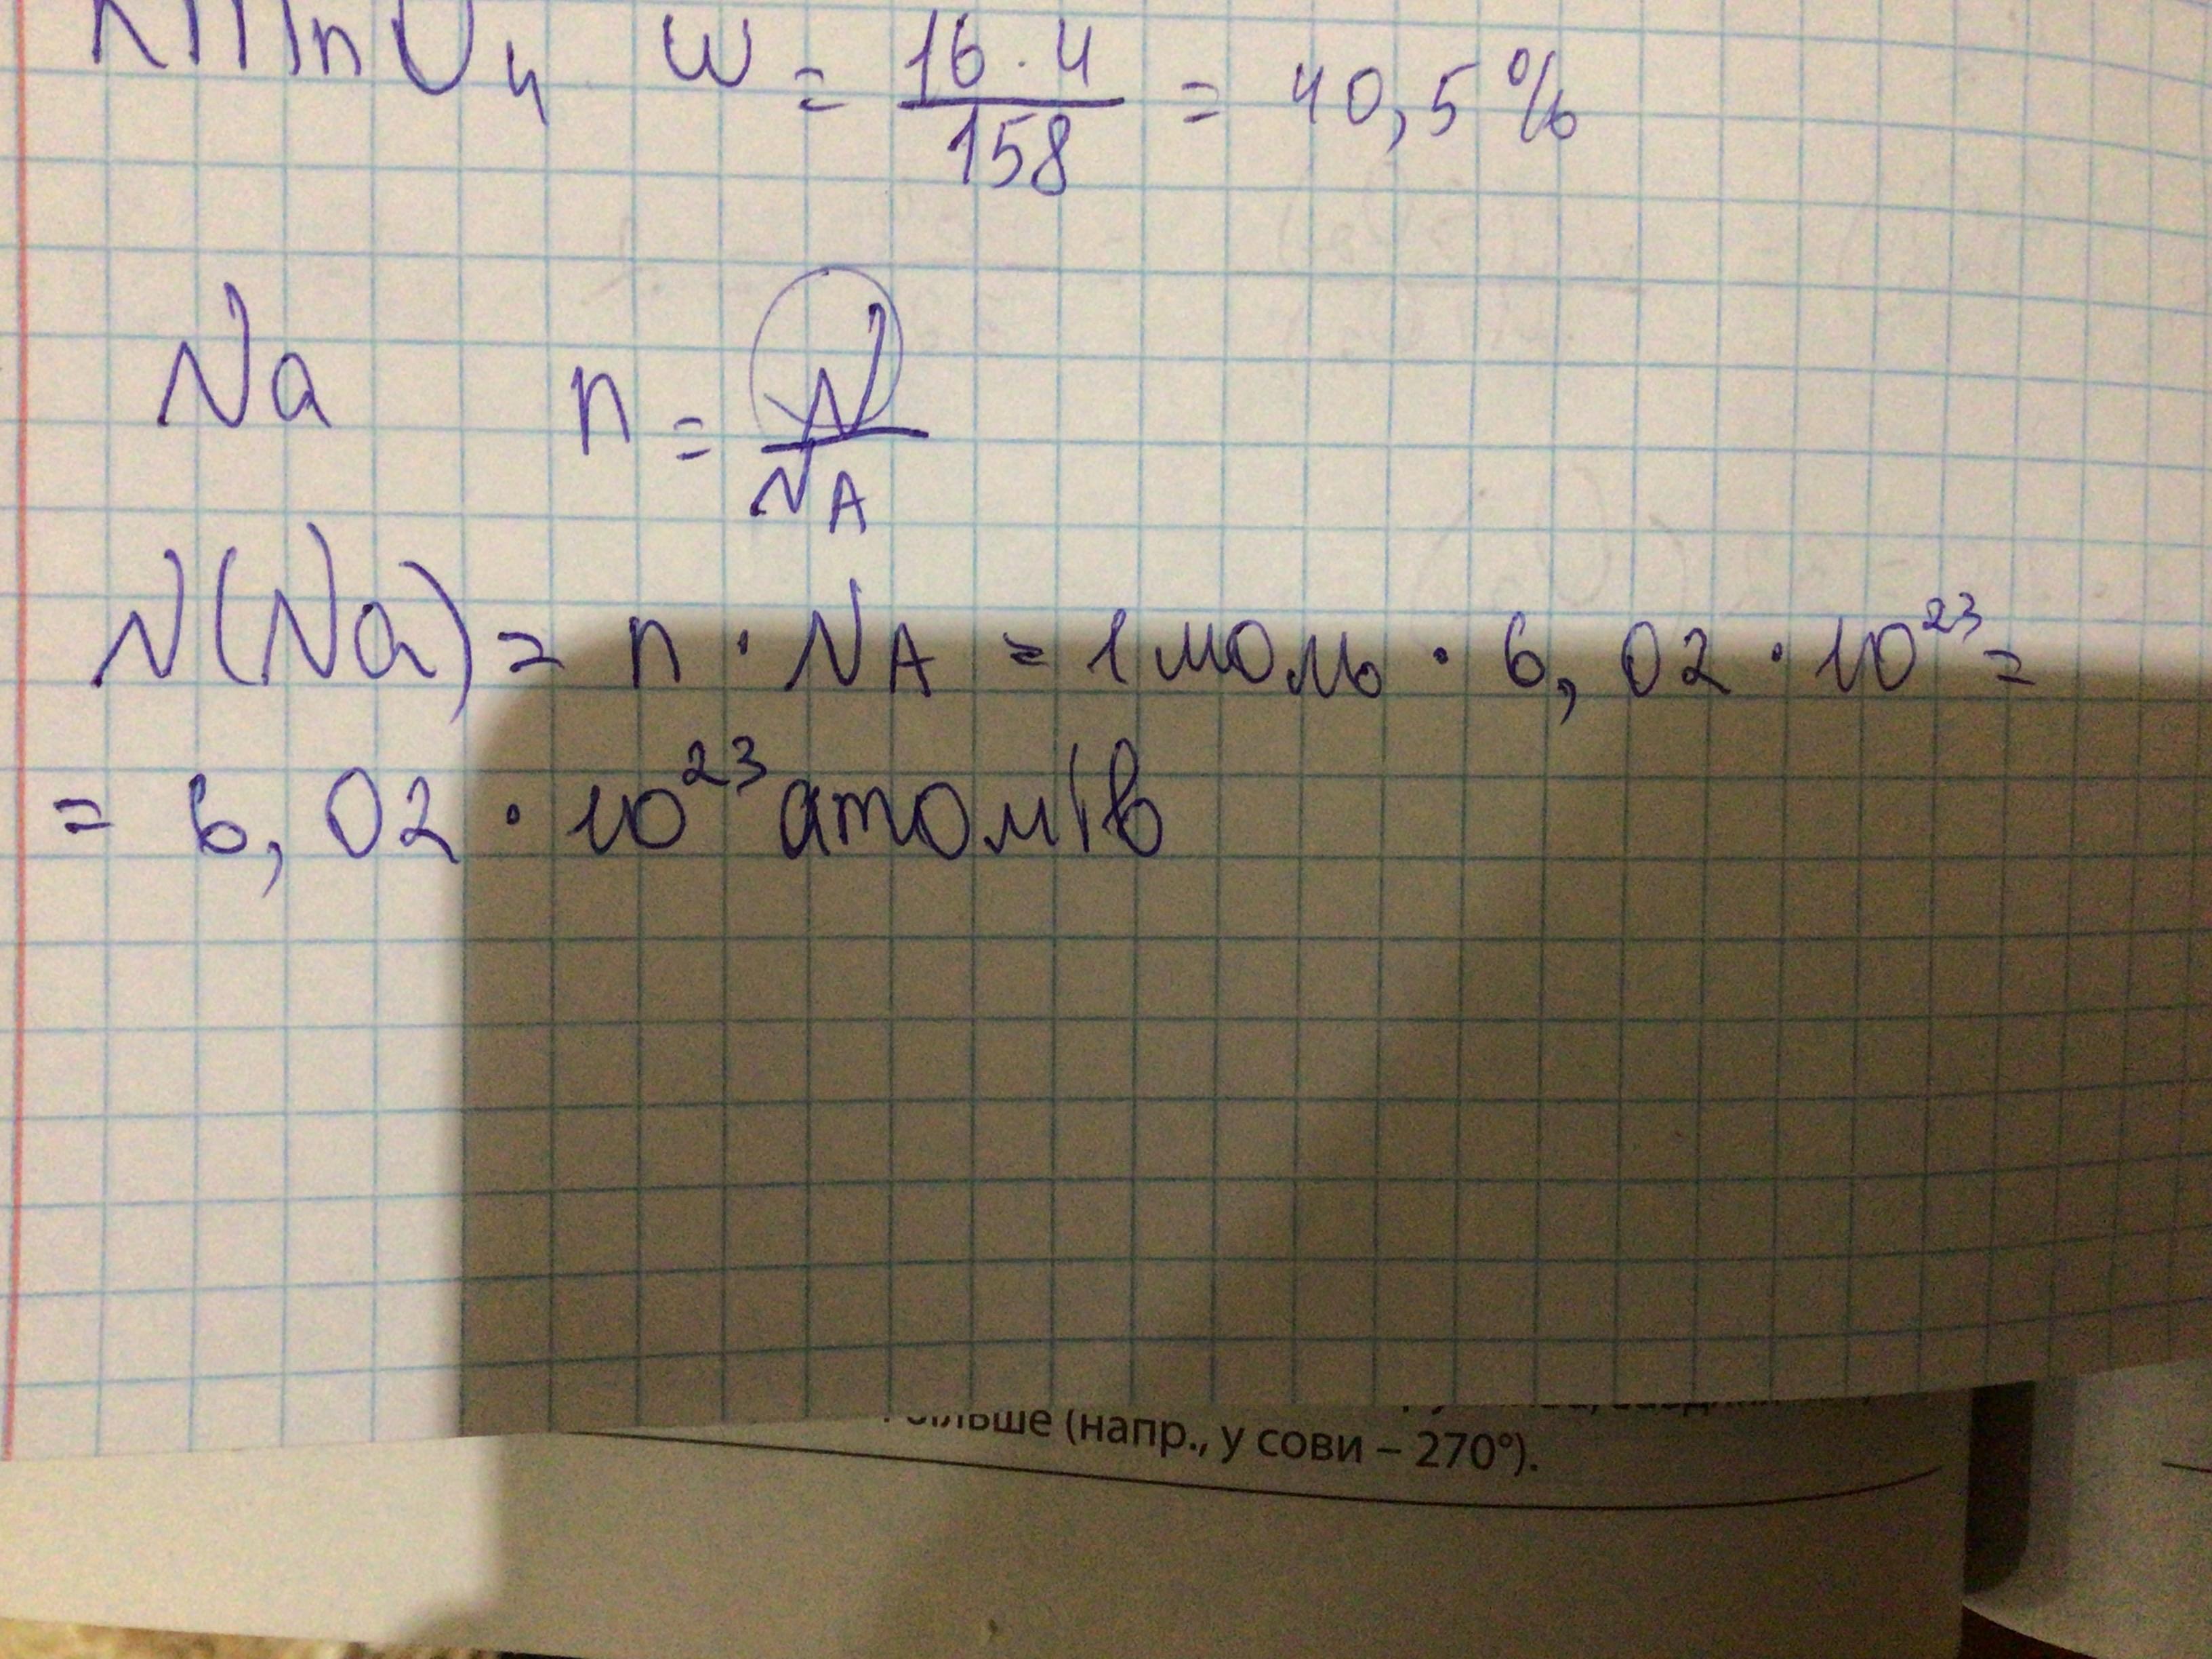 KMnO₄ w = 16 · 4 / 158 = 40,5 %
Na n = N / N_A
N(Na) = n · N_A = 1 моль · 6, 02 · 10²³ =
= 6, 02 · 10²³ атомів
більше (напр., у сови – 270°).